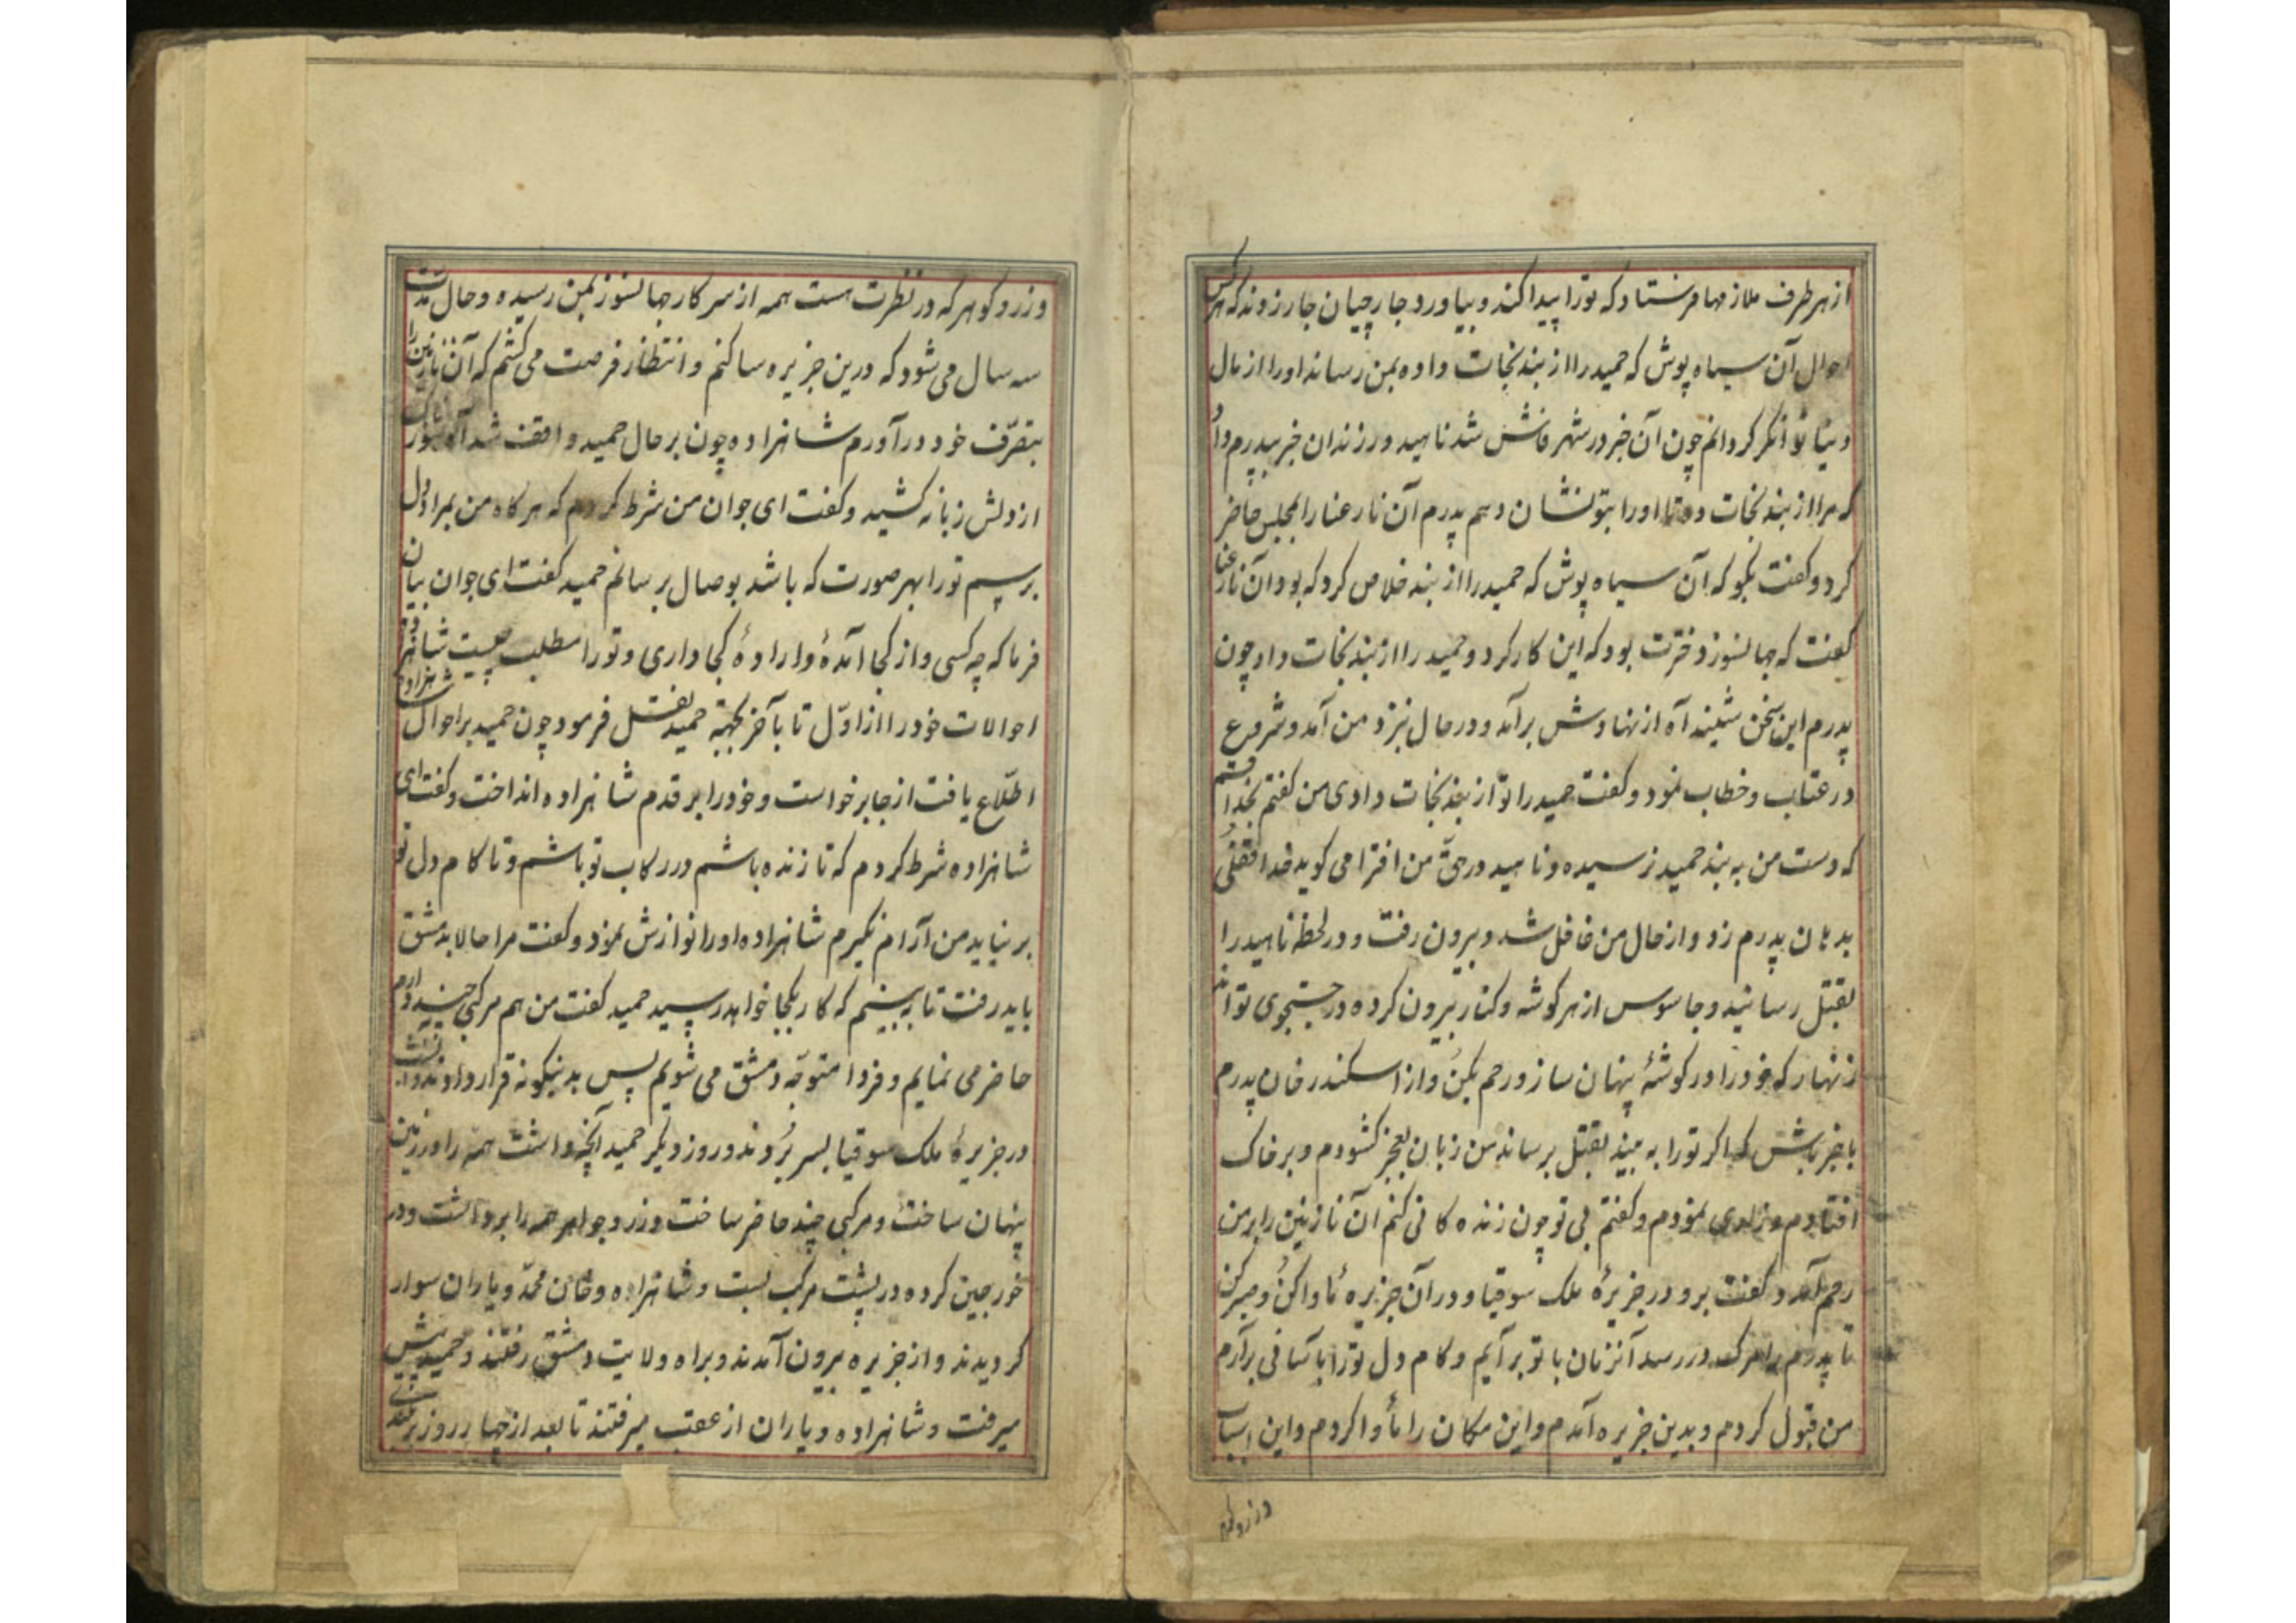 از هر طرف ملازمها فرستاد که تورا پیدا کند و بیاورد جارچیان جار زدند که هرکس
احوال آن سیاه پوش که حمید را از بند نجات داده بمن رساند اورا از مال
دنیا توانگر کردانم چون آن خبر در شهر فاش شد ناهید در زندان خبر بپدرم داد
که مرا از بند نجات ده تا اورا بتو نشان دهم پدرم آن نارعنا را بمجلس حاضر
کرد و کفت بکو که آن سیاه پوش که حمید را از بند خلاص کرد که بود آن نارعنا
کفت که جهانسوز دخترت بود که این کار کرد و حمید را از بند نجات داد چون
پدرم این سخن شنید آه از نهادش برآمد و در حال بنزد من آمد و شروع
در عتاب و خطاب نمود و کفت حمید را تو از بند نجات دادی من کفتم بخدا قسم
که دست من به بند حمید نرسیده و ناهید در حق من افترا می کوید خدا قفلی
بدهان پدرم زد و از حال من غافل شد و بیرون رفت و در لحظه ناهید را
بقتل رسانید و جاسوس از هر کوشه و کنار بیرون کرده در جستجوی تو اند
زنهار که خود را در کوشهٔ پنهان ساز و رحم بکن و از اسکندر خان پدرم
با خبر باش که اکر تورا به بیند بقتل برساند من زبان بعجز کشودم و بر خاک
افتادم و زاری نمودم و کفتم بی تو چون زنده کانی کنم آن نازنین را بر من
رحم آمد و کفت برو در جزیرهٔ ملک سوقیا و در آن جزیره مأوا کن و صبر کن
تا پدرم را مرک در رسد آنزمان با تو برآیم و کام دل تورا بآسانی برآرم
من قبول کردم و بدین جزیره آمدم و این مکان را مأوا کردم و این اسباب
و زر و کوهر
و زر و کوهر که در نظرت هست همه از سرکار جهانسوز بمن رسیده و حال مدت
سه سال می شود که درین جزیره ساکنم و انتظار فرصت می کشم که آن نازنین را
بتصرّف خود درآورم شاهزاده چون بر حال حمید واقف شد آه
از دلش زبانه کشید و کفت ای جوان من شرط کردم که هر کاه من بمراد دل
برسم تورا بهر صورت که باشد بوصال برسانم حمید کفت ای جوان بیان
فرما که چه کسی و از کجا آمدهٔ و ارادهٔ کجا داری و تورا مطلب چیست شاهزاده
احوالات خود را از اوّل تا بآخر بجهة حمید نقل فرمود چون حمید بر احوال شاهزاده
اطّلاع یافت از جا برخواست و خود را بر قدم شاهزاده انداخت و کفت ای
شاهزاده شرط کردم که تا زنده باشم در رکاب تو باشم و تا کام دل تو
بر نیاید من آرام نکیرم شاهزاده اورا نوازش نمود و کفت مرا حالا بدمشق
باید رفت تا به بینیم که کار بکجا خواهد رسید حمید کفت من هم مرکبی چند دارم
حاضر می نمایم و فردا متوجّه دمشق می شویم پس بدینکونه قرار دادند و آنشب
در جزیرهٔ ملک سوقیا بسر بُردند و روز دیکر حمید آنچه داشت همه را در زمین
پنهان ساخت و مرکبی چند حاضر ساخت و زر و جواهر همه را برداشت و در
خورجین کرده در پشت مرکب بست و شاهزاده و خان محمّد و یاران سوار
کردیدند و از جزیره بیرون آمدند و براه ولایت دمشق رفتند و حمید پیش
میرفت و شاهزاده و یاران از عقب میرفتند تا بعد از چهار روز بر بلندی